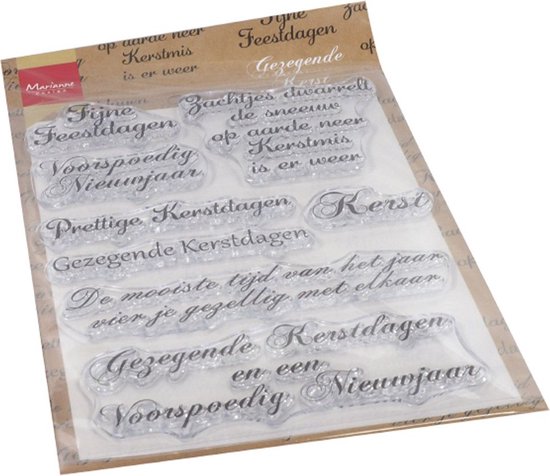 op aarde neer
Kerstmis
is er weer
Fijne
Feestdagen
Marianne
Gezegende
Kerst
Fijne
Feestdagen
Zachtjes dwarrelt
de sneeuw
op aarde neer
Kerstmis
is er weer
Voorspoedig
Nieuwjaar
Prettige Kerstdagen
Kerst
Gezegende Kerstdagen
De mooiste tijd van het jaar
vier je gezellig met elkaar
Gezegende Kerstdagen
en een
Voorspoedig Nieuwjaar